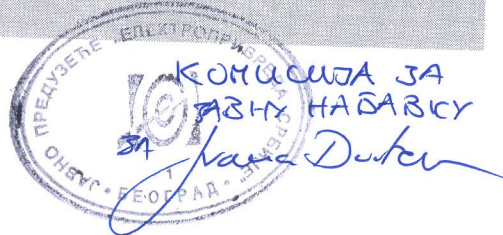 ЈАВНО ПРЕДУЗЕЋЕ "ЕЛЕКТРОПРИВРЕДА СРБИЈЕ"
1
БЕОГРАД
КОМИСИЈА ЗА
ЈАВНУ НАБАВКУ
ЗА